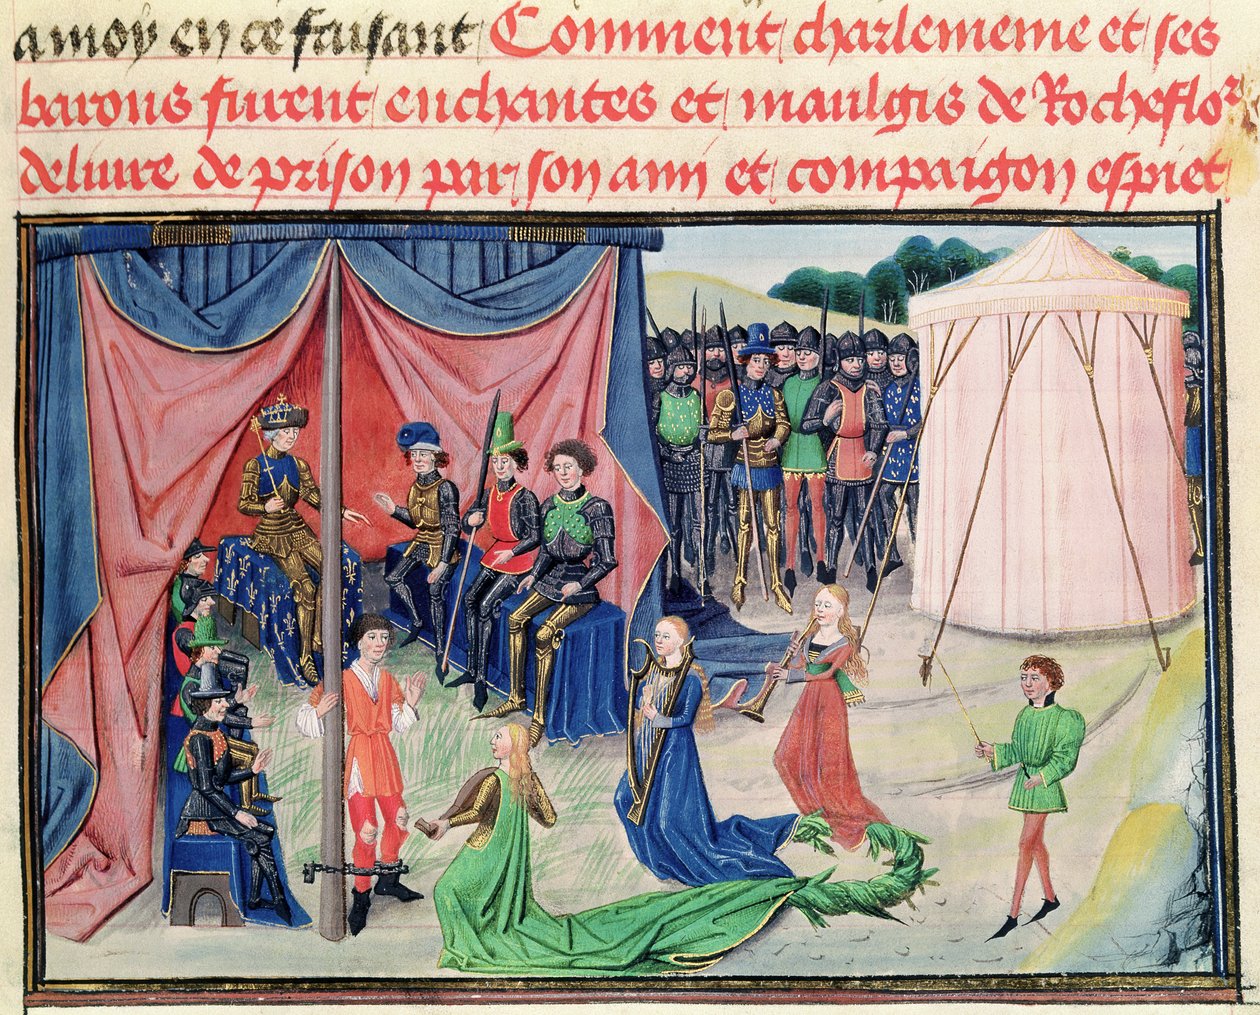 a moy en ce faisant Comment charlemeine et ses
barons furent enchantes et maulgis de Rocheflor
deliure de prison par son ami et compaignon espiet